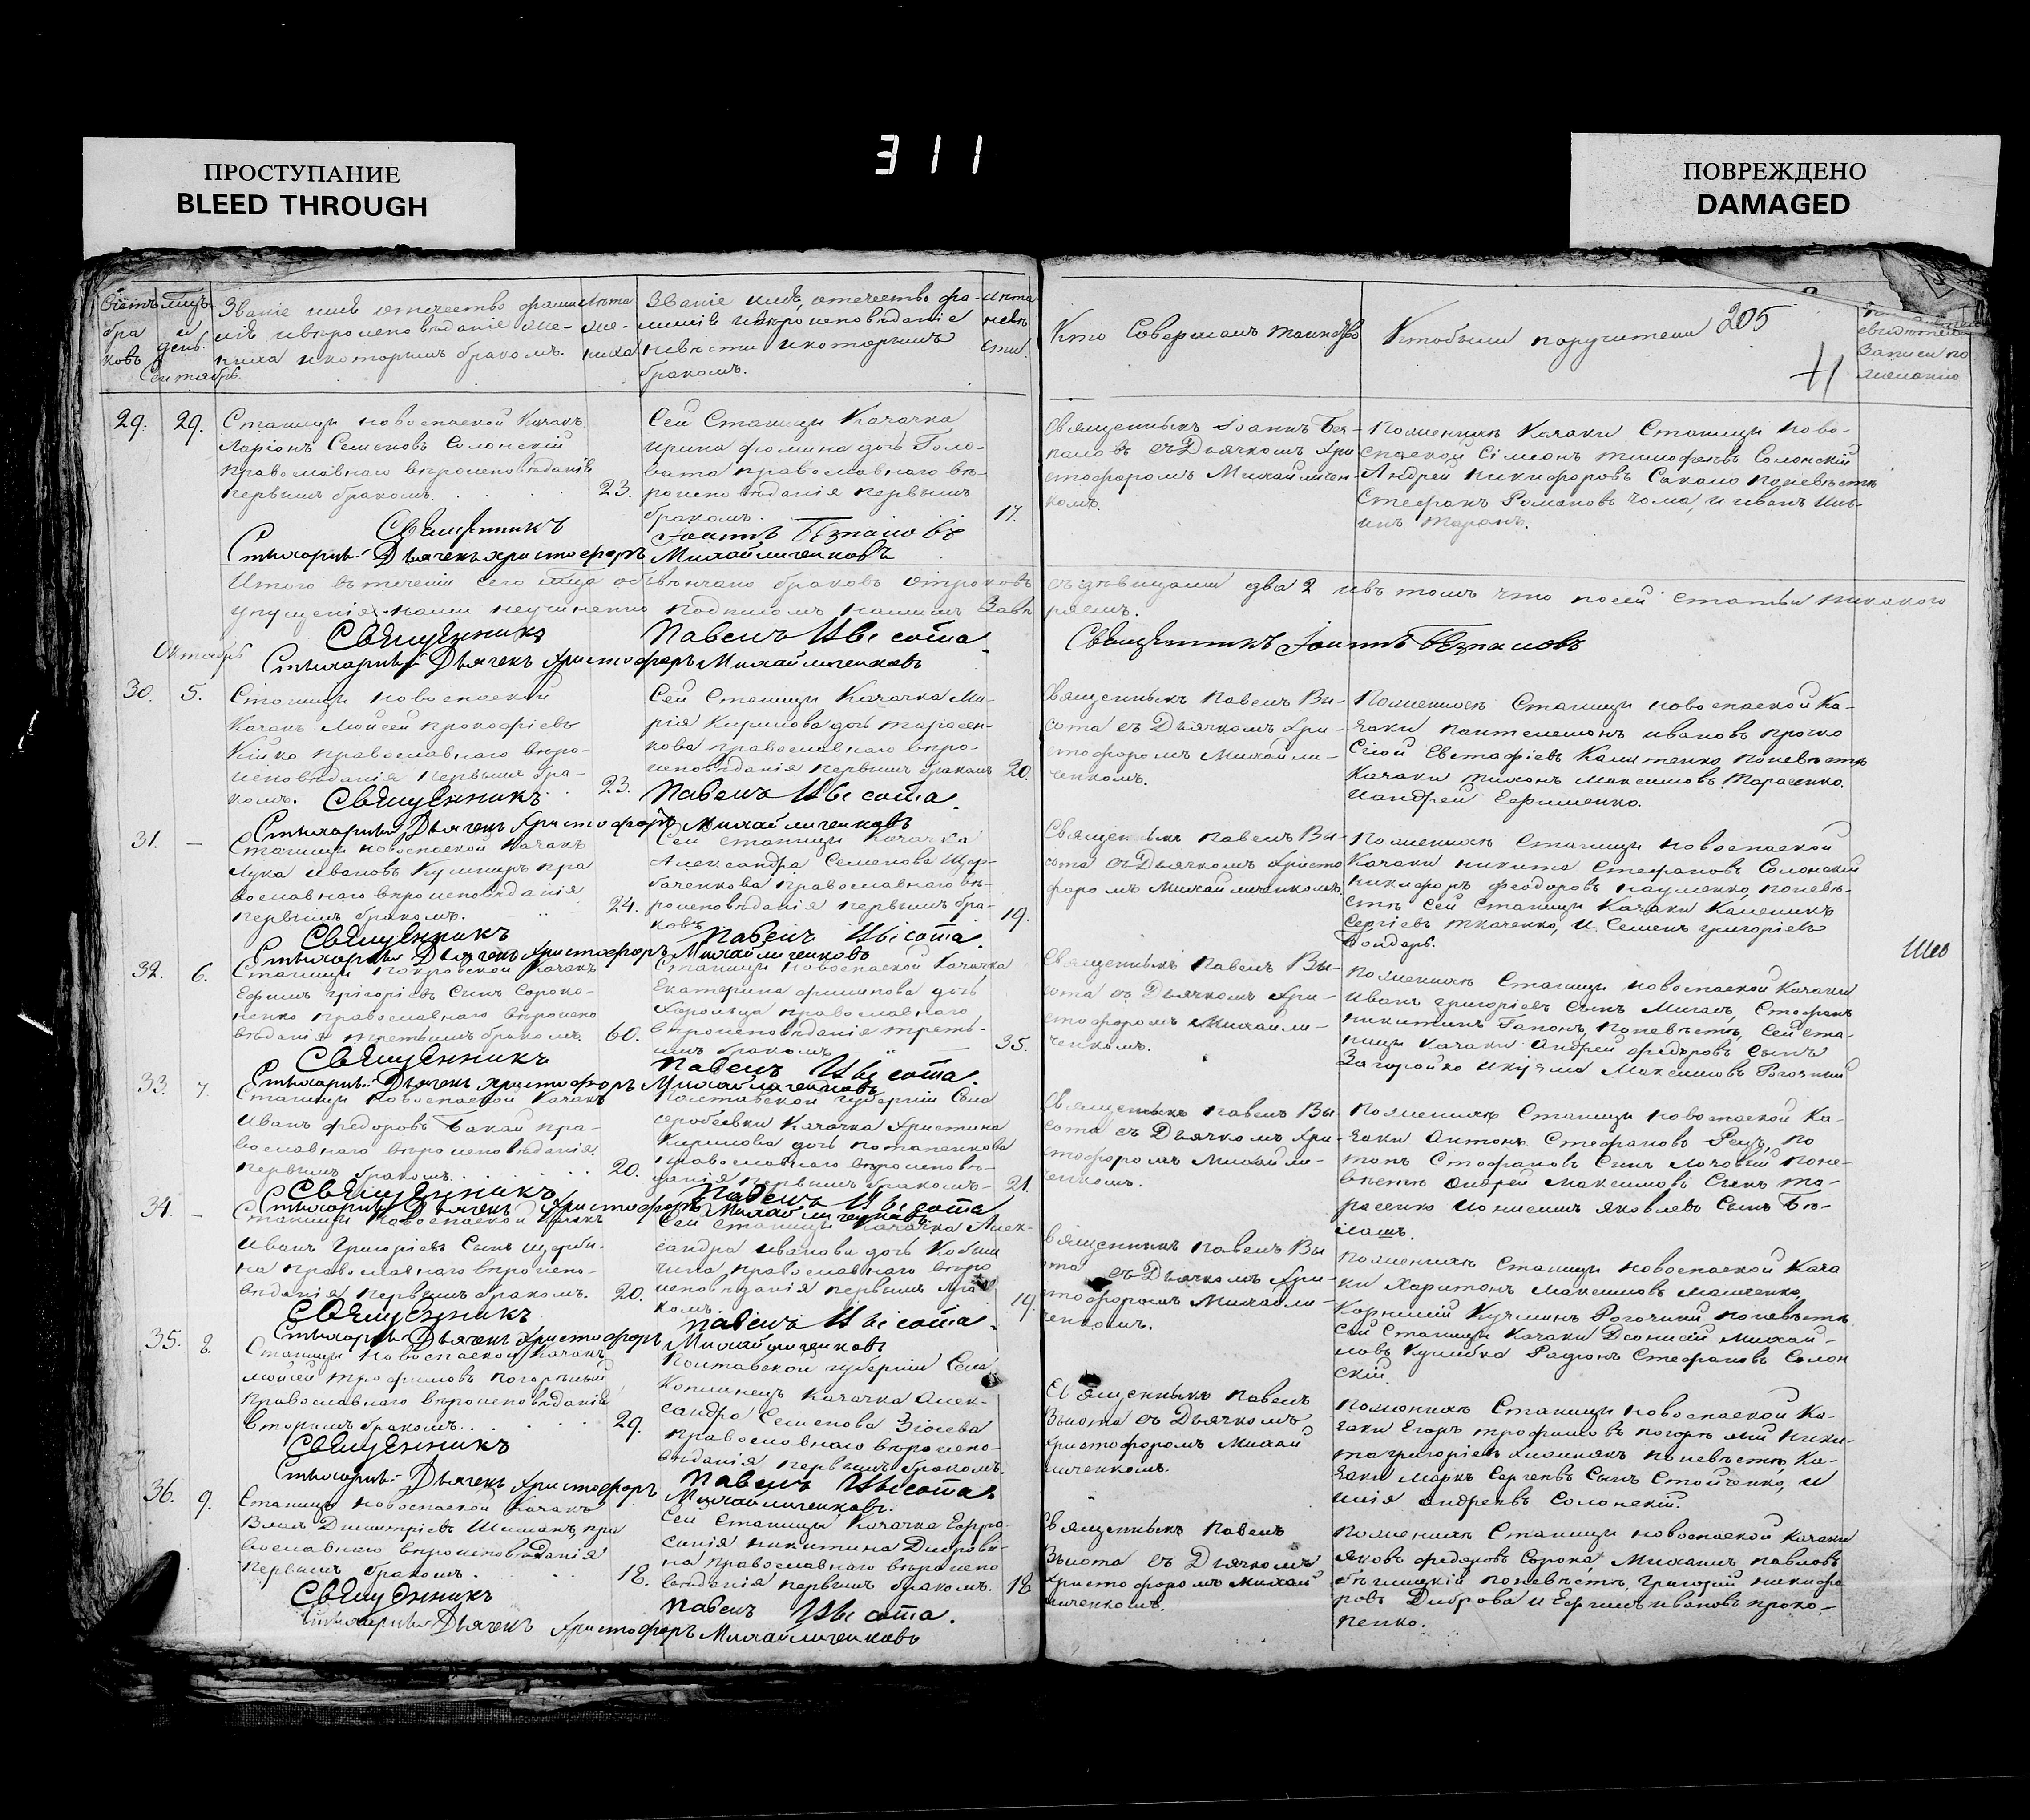 ПРОСТУПАНИЕ
BLEED THROUGH
311
ПОВРЕЖДЕНО
DAMAGED
Званіе имя отечество фами
лія и вѣроисповѣданіе же-
ниха и которымъ бракомъ.
Лѣта
же-
ниха
Званіе имя, отечество фа-
миліе и вѣроисповѣданіе
невѣсты и которымъ
бракомъ.
Лѣта
невѣ
сты.
Сентябрь.
Кто Совершалъ таинство
Кто были поручители
205
29. 29.
Станицы Новоспаской Казакъ
Ларіонъ Семеновъ Солонскій
Православнаго вѣроисповѣданія
первымъ бракомъ.
23.
Сей Станицы Казачка
Ирина Фомина дочь Голо-
вата православнаго вѣ-
роисповѣданія первымъ
бракомъ.
17.
Священникъ Іоаннъ
съ Дьячкомъ Хри
стофоромъ Михайличен-
комъ.
По женихѣ Казаки Станицы Ново-
спаской Сімеонъ Тимофѣевъ Солонскій
Андрей Никифоровъ по невѣстѣ
Стефанъ Романовъ Чома, и Иванъ
Священникъ Іоаннъ
Стихарный Дьячекъ Христофоръ Михайличенковъ
Итого въ теченіи сего мѣсяца обвѣнчано браковъ отроковъ
съ дѣвицами два 2 и въ томъ что по сей статьи никакого
упущенія нами неучиненно подписомъ нашимъ завѣ
ряемъ.
Священникъ Павелъ Высота
Священникъ Іоаннъ
Октябрь
Стихарный Дьячекъ Христофоръ Михайличенковъ
30. 5.
Станицы Новоспаской
Казакъ Мойсей Прокофіевъ
Кійко православнаго вѣро-
исповѣданія первымъ бра-
комъ.
23.
Сей Станицы Казачка Ма-
рія Кирилова дочь Тарасен-
кова православнаго вѣро-
исповѣданія первымъ бракомъ
20.
Священникъ Павелъ Вы-
сота съ Дьячкомъ Хри-
стофоромъ Михайли-
ченкомъ.
По женихѣ Станицы Новоспаской Ка-
заки Пантелеймонъ Ивановъ
Евстафіевъ Калитенко, по невѣстѣ
Казаки Тихонъ Максимовъ Тарасенко.
и Андрей Ефименко.
Священникъ Павелъ Высота.
Стихарный Дьячекъ Христофоръ Михайличенковъ
31. —
Станицы Новоспаской Казакъ
Лука Ивановъ Кушниръ пра
вославнаго вѣроисповѣданія
первымъ бракомъ.
24.
Сей станицы Казачка
Александра Семенова
православнаго вѣ-
роисповѣданія первымъ бра-
комъ
19.
Священникъ Павелъ Вы-
сота съ Дьячкомъ Христо
форомъ Михайличенкомъ
По женихѣ Станицы Новоспаской
Казаки Никита Стефановъ Солонскій
Никифоръ Феодоровъ Науменко, по невѣ-
стѣ сей Станицы Казаки
Сергіевъ Ткаченко, и Семенъ Григоріевъ
Бондарь.
Священникъ Павелъ Высота.
Стихарный Дьячекъ Христофоръ Михайличенковъ
32. 6.
Станицы Покровской Казакъ
Ефимъ Григоріевъ Сынъ Сороко-
пенко православнаго вѣроиспо
вѣданія третьимъ бракомъ.
60.
Станицы Новоспаской Казачка
Екатерина Филипова дочь
православнаго
вѣроисповѣданіе треть-
имъ бракомъ
35.
Священникъ Павелъ Вы-
сота съ Дьячкомъ Хри-
стофоромъ Михайли-
ченкомъ.
По женихѣ Станицы Новоспаской Казаки
Иванъ Григоріевъ сынъ Стефанъ
Никитинъ Гапонъ, по невѣстѣ, Сей ста-
ницы Казаки Андрей Федоровъ Сынъ
Загоройко и Кузьма Максимовъ Рогочный
Священникъ Павелъ Высота.
Стихарный Дьячекъ Христофоръ Михайличенковъ
33. 7.
Станицы Новоспаской Казакъ
Иванъ Федоровъ Бакай пра-
вославнаго вѣроисповѣданія
первымъ бракомъ.
20.
Полтавской губерніи Села
Казачка Христина
Кирилова дочь Потапенкова
православнаго вѣроисповѣ-
данія первымъ бракомъ
21.
Священникъ Павелъ Вы
сота съ Дьячкомъ Хри-
стофоромъ Михайли-
ченкомъ.
По женихѣ Станицы Новоспаской Ка-
заки Антонъ Стефановъ
Стефановъ Сынъ по не-
вѣстѣ Андрей Максимовъ Сынъ Та-
расенко и Онисимъ Яковлевъ Сынъ
Священникъ Павелъ Высота
Стихарный Дьячекъ Христофоръ Михайличенковъ
34. —
Станицы Новоспаской Казакъ
Иванъ Григоріевъ Сынъ Щерби-
на православнаго вѣроиспо-
вѣданія первымъ бракомъ.
20.
Сей станицы Казачка Алек-
сандра Иванова дочь
православнаго вѣро
исповѣданія первымъ бра
комъ.
19.
Священникъ Павелъ Вы
сота съ Дьячкомъ Хри-
стофоромъ Михайли-
ченкомъ.
По женихѣ Станицы Новоспаской Каза
ки Харитонъ Максимовъ
Корнилій Рогочный по невѣстѣ
Сей Станицы Казаки Діонисій Михай-
ловъ Родіонъ Стефановъ Солон
скій.
Священникъ Павелъ Высота.
Стихарный Дьячекъ Христофоръ Михайличенковъ
35. 8.
Станицы Новоспаской Казакъ
Мойсей Трофимовъ Погорѣлый
православнаго вѣроисповѣданія
вторымъ бракомъ.
29.
Полтавской губерніи Села
Казачка Алек-
сандра Семенова
православнаго вѣроиспо-
вѣданія первымъ бракомъ.
Священникъ Павелъ
Высота съ Дьячкомъ
Христофоромъ Михай
личенкомъ.
По женихѣ Станицы Новоспаской Ка-
заки Егоръ Трофимовъ Погорѣлый Ники-
та Григоріевъ по невѣстѣ, Ка-
заки Маркъ Сергеевъ Сынъ Стойченко, и
Илія Андреевъ Солонскій.
Священникъ Павелъ Высота.
Стихарный Дьячекъ Христофоръ Михайличенковъ.
36. 9.
Станицы Новоспаской Казакъ
Власъ Димитріевъ Шиманъ пра
вославнаго вѣроисповѣданія
первымъ бракомъ.
18.
Сей Станицы Казачка Ефро-
синія Никитина Диброви-
на православнаго вѣроиспо
вѣданія первымъ бракомъ.
18
Священникъ Павелъ
Высота съ Дьячкомъ
Христофоромъ Михай
личенкомъ.
По женихѣ Станицы Новоспаской Казаки
Яковъ Федоровъ Сорока Михаилъ Павловъ
по невѣстѣ, Григорій Никифо
ровъ Диброва и Ефимъ Ивановъ Проко-
пенко.
Священникъ Павелъ Высота.
Стихарный Дьячекъ Христофоръ Михайличенковъ